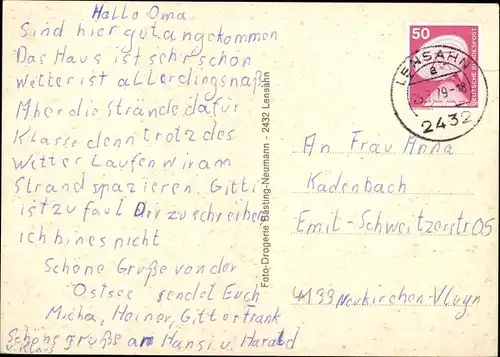 Hallo Oma
Sind hier gut angekommen
Das Haus ist sehr schön
Wetter ist allerdings naß
Aber die Strande dafür
Klasse denn trotz des
Wetter Laufen wir am
Strand spazieren. Gitti
ist zu faul Dir zu schreiben
ich bin es nicht
Schöne Grüße von der
Ostsee sendet Euch
Micha, Heiner, Gitte + Frank
Schöne grüße an Hansi u. Harald
u. Klaus
Foto-Drogerie Basting-Neumann - 2432 Lensahn
50
DEUTSCHE BUNDESPOST
LENSAHN
a
79-18
2432
An Frau Anna
Kadenbach
Emil-Schweitzerstr 05
4133 Neukirchen-Vluyn